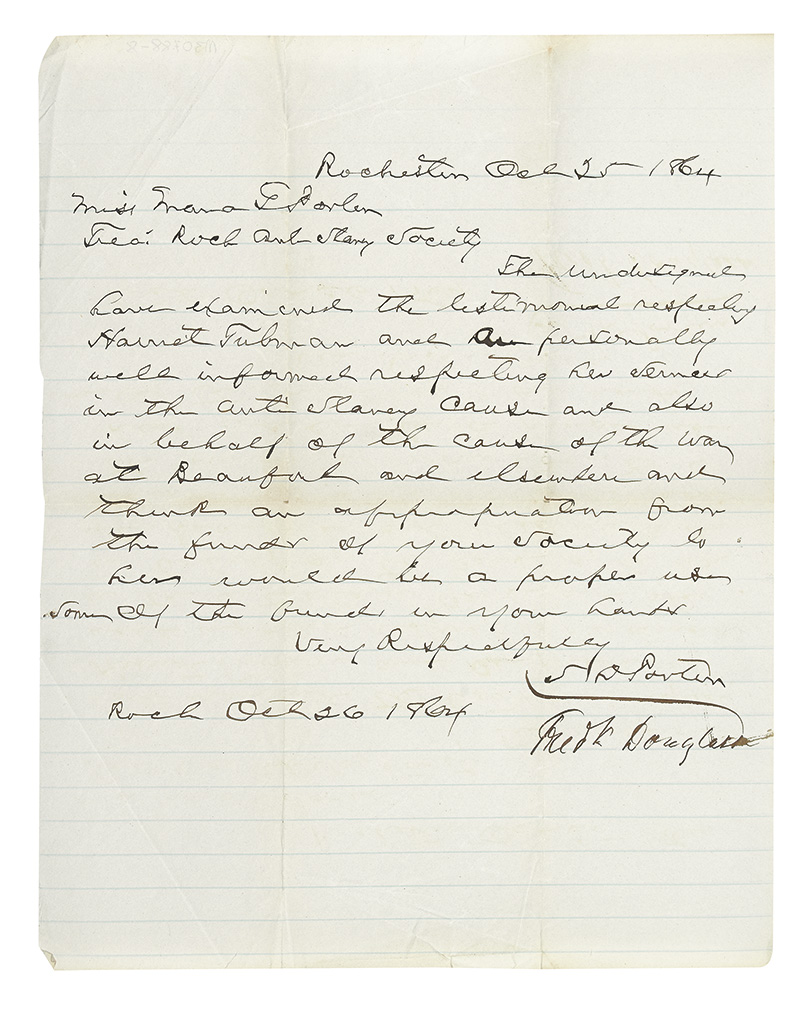 Rochester Oct 25 1864
Miss Maria G Porter
Trea: Roch Anti Slavery Society
The undersigned
have examined the testimonial respecting
Harriet Tubman and are personally
well informed respecting her services
in the Anti Slavery cause and also
in behalf of the cause of the war
at Beaufort and elsewhere and
think an appropriation from
the funds of your Society to
her would be a proper use
Some of the funds in your hands
Very Respectfully
S D Porter
Roch Oct 26 1864
Fredk Douglass